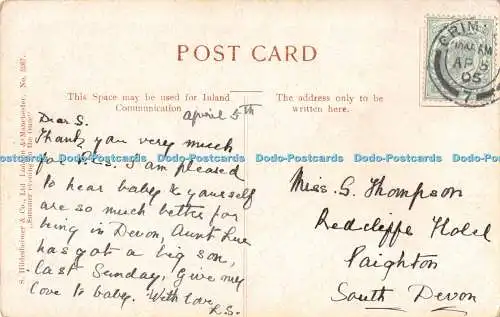 POST CARD
This Space may be used for Inland
Communication
The address only to be
written here.
GRIM
AP 5
05
7
S. Hildesheimer & Co., Ltd London & Manchester. No. 5267.
April 5th
Dear S.
Thank you very much
for P.Cs. I am pleased
to hear baby & yourself
are so much better for
being in Devon, Aunt
has got a big son,
last Sunday, Give my
love to baby. With Love
L.S.
Miss. S. Thompson
Redcliffe Hotel
Paighton
South Devon
Dodo-Postcards Dodo-Postcards Dodo-Postcards Dodo-Postcards Dodo-Postcards